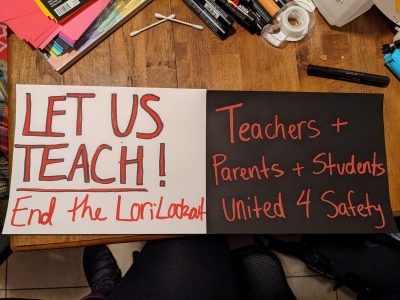 LET US
TEACH!
End the Lori Lockout
Teachers +
Parents + Students
United 4 Safety